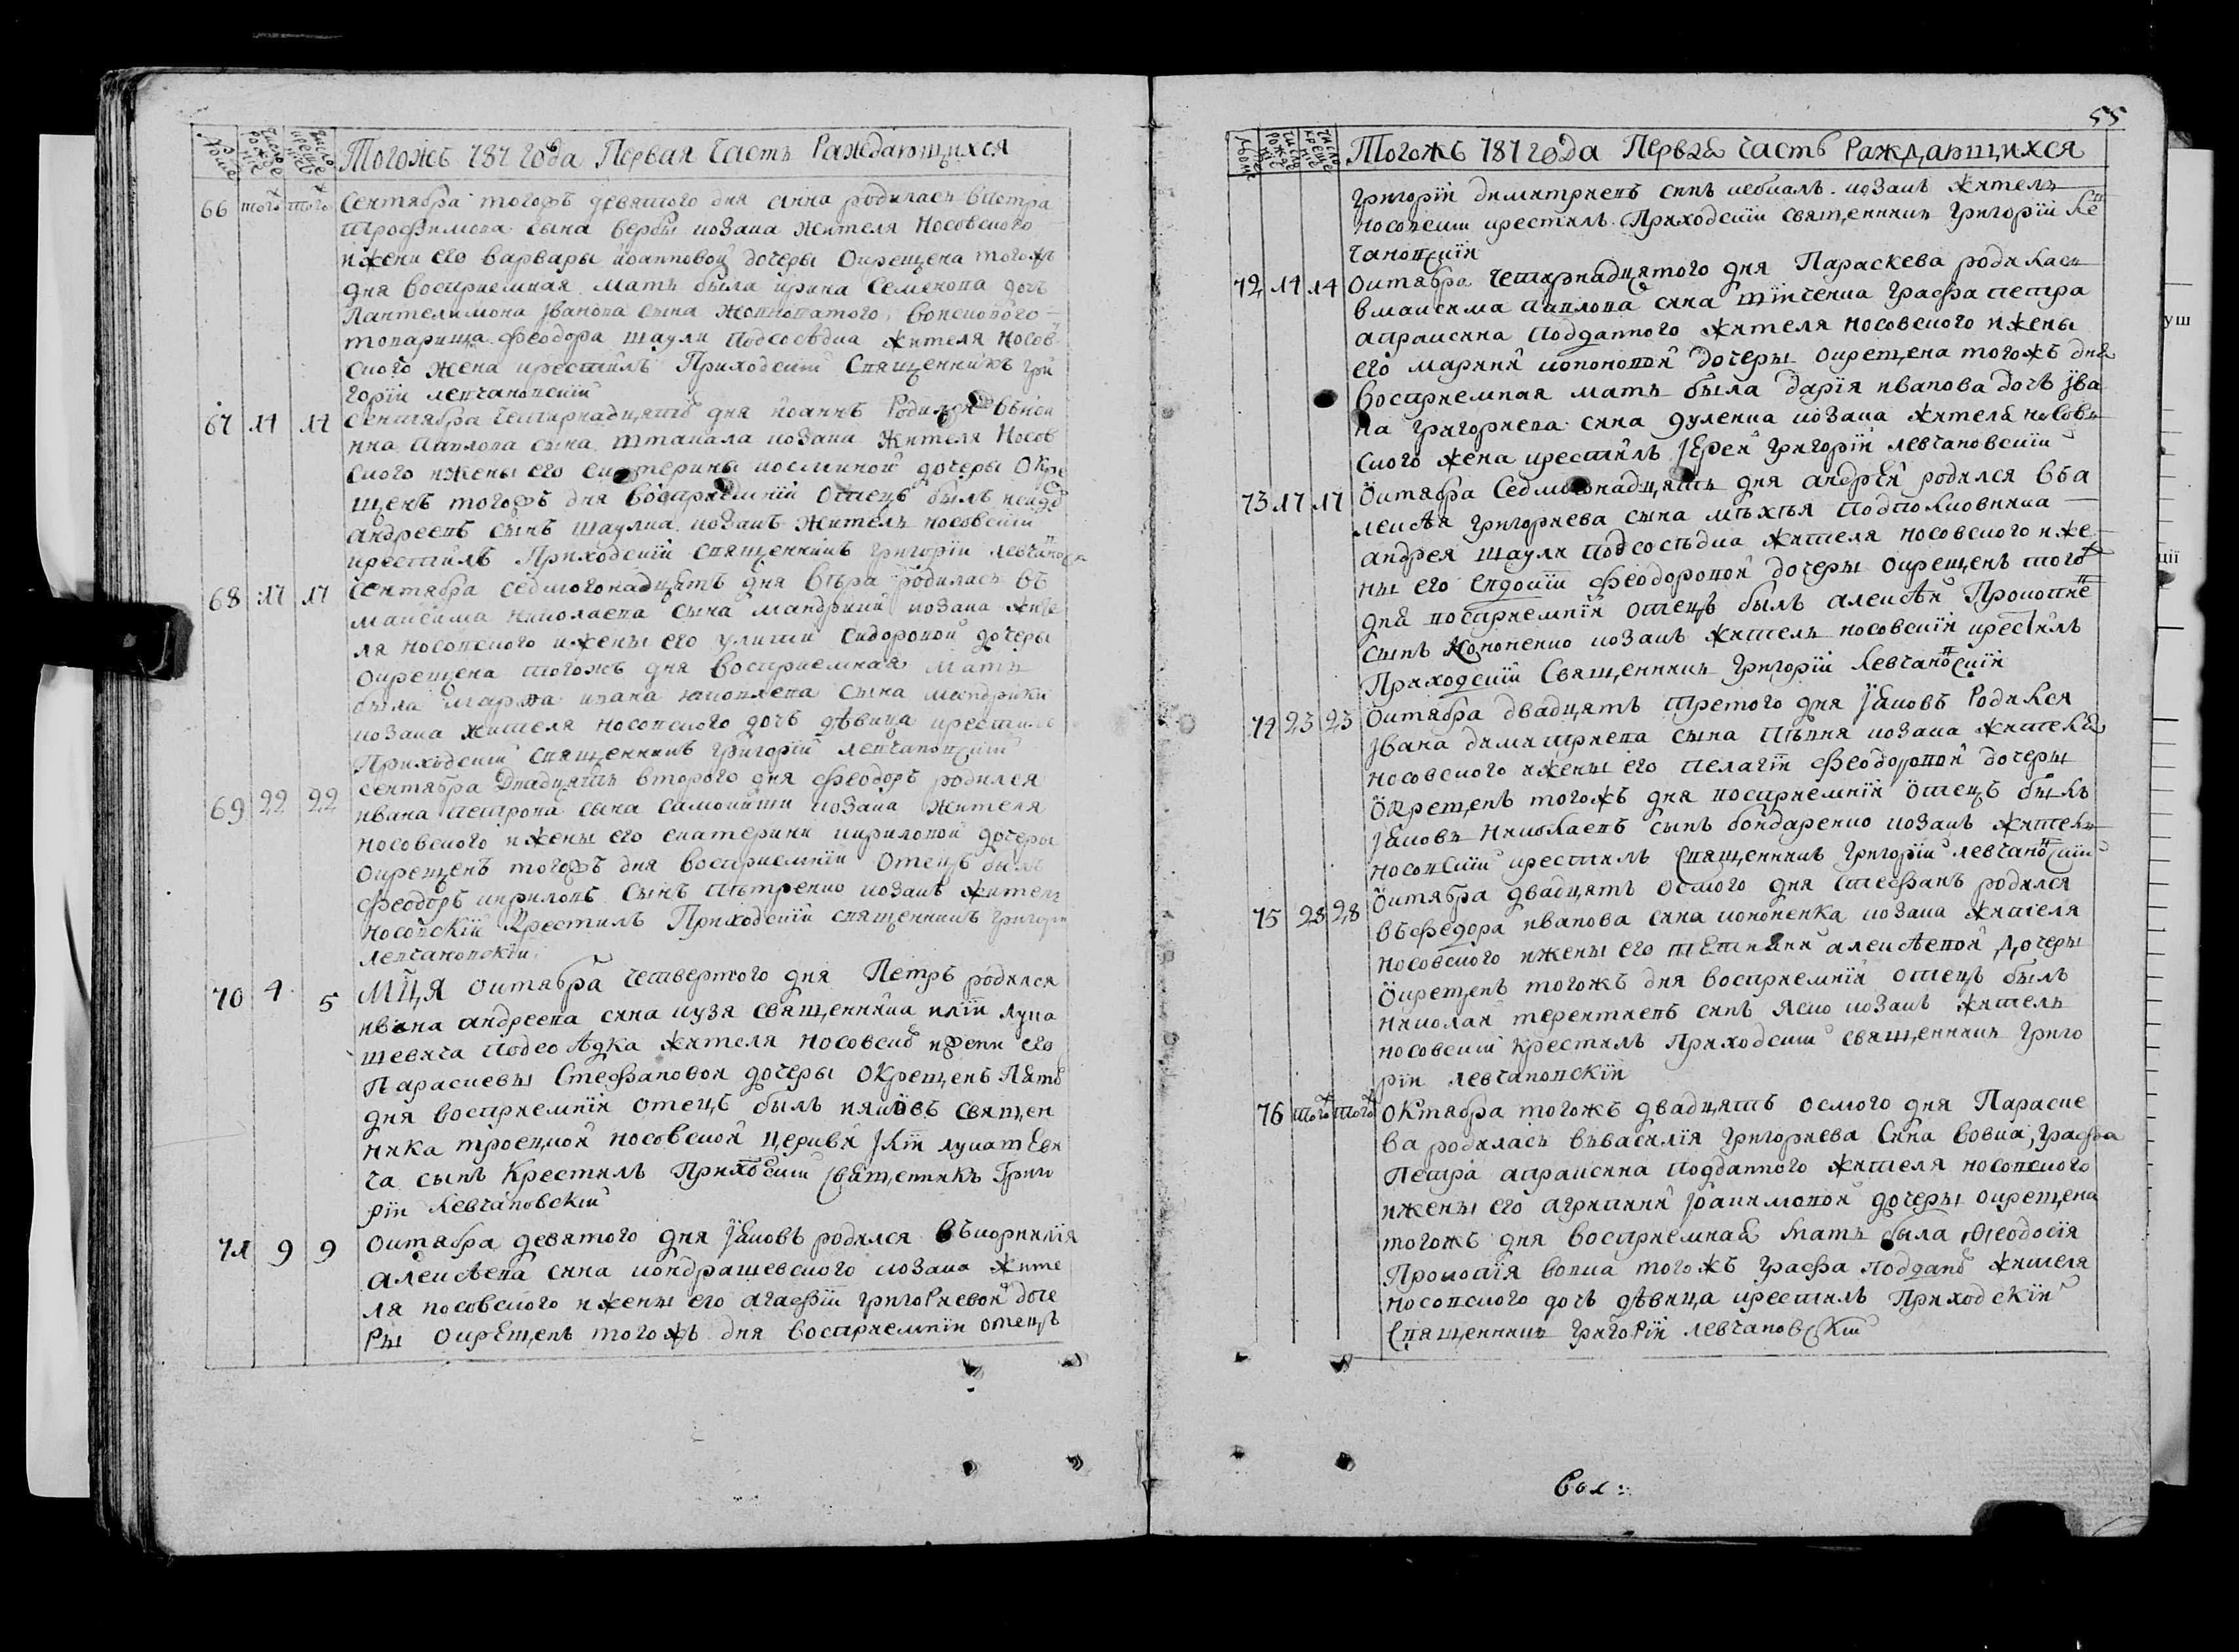 Тогожъ 787 года Первая Часть Раждающихся
66 того того Сентября тогожъ девятого дня анна родилась въ петра
трофимова сына вербы козака жителя носовского
и жени его варвары иоанновой дочеры окрещена тогожъ
дня восприемная мать была ирина Семенова дочь
Пантелимона Іванова сына Жовноватого, войскового
товарища феодора шаули подсосѣдка жителя Носов
ского жена крестилъ Приходский Священникъ гри
горій левчановский
67 14 14 Сентября Четирнадцятъ дня иоаннъ Родился
павлова сына козака жителя Носов
ского и жены его екатерины космыной дочеры окре
щенъ тогожъ дня восприемній отецъ былъ
андреевъ сынъ шаулка козакъ житель носовскій
крестилъ Приходскій священникъ григорій левчановск
68 17 17 Сентября седмогонадцять дня вѣра родилась въ
максима николаева сына мандрики козака жите
ля носовского и жены его улити сидоровой дочеры
окрещена тогожъ дня восприемная мать
была марфа ивана сына мандрики
козака жителя носовского дочь дѣвица крестилъ
Приходский священникъ григорій левчановский
69 22 22 Сентября двадцять второго дня феодоръ родился
ивана петрова сына козака жителя
носовского и жены его екатерини кириловой дочеры
окрещенъ тогожъ дня восприемній отецъ былъ
феодоръ кириловъ сынъ козакъ житель
носовскій Крестилъ Приходскій священникъ григорій
левчановскій
70 4 5 МЦЯ октября четвертого дня Петръ родился
ивана андреева сина кузя священника иліи лука
шевича подсосѣдка жителя носовско и жени его
Парасковы Стефановой дочеры окрещенъ пять
дня восприемній отецъ былъ яковъ священ
ника троецкой носовской церкви Ілїи лукашеви
ча сынъ Крестилъ Приходский священникъ григо
рій Левчановский
71 9 9 Октября девятого дня Іаковъ родился въ корнилія
алексѣева сина кондрашевского козака жите
ля носовского и жены его агафіи григориевой доче
ры окрещенъ тогожъ дня восприемній отецъ
55
Тогожъ 787 года Первая Часть Раждающихся
григорій димитриевъ синъ козакъ житель
носовский крестилъ Приходский священникъ григорій Ле
чановскій
72 14 14 Октября четирнадцятого дня Параскева родилась
в максима павлова сина графа петра
апраксина подданного жителя носовского и жены
его марини кононовой дочеры окрещена тогожъ дня
восприемная мать была дарія иванова дочь Іва
на григориева сина дуленка козака жителя носовъ
ского жена крестилъ Іерей григорій левчановский
73 17 17 Октября Седмогонадцять дня андрей родился въ а
лексѣя григориева сына подполковника
андрея шаули подсосѣдка жителя носовского и же
ны его евдокіи феодоровой дочеры окрещенъ того
дня восприемній отецъ былъ алексѣй Прокопие
сынъ Кононенко козакъ житель носовскій крестилъ
Приходский Священникъ григорій Левчановскій
74 23 23 Октября двадцять третого дня Іаковъ Родился
Івана димитриева сына пѣвня козака жителя
носовского и жены его пелагіи феодоровой дочеры
Окрещенъ тогожъ дня восприемній отецъ былъ
Іаковъ николаевъ сынъ бондаренко козакъ житель
носовский крестилъ Священникъ григорій левчановский
75 28 28 Октября двадцять осмого дня Стефанъ родился
въ федора иванова сина кононенка козака жителя
носовского и жены его алексѣевой дочеры
Окрещенъ тогожъ дня восприемній отецъ былъ
николай терентиевъ синъ Яско козакъ житель
носовский крестилъ Приходский священникъ григо
рій левчановскій
76 того того Октября тогожъ двадцять осмого дня Параске
ва родилась въ василія григориева Сина вовка, графа
Петра апраксина подданного жителя носовского
и жены его агрипини Іоакимовой дочеры окрещена
тогожъ дня восприемная мать была феодосія
Прокопія вовка тогожъ графа поддано жителя
носовского дочь дѣвица крестилъ Приходскій
Священникъ григорій левчановский